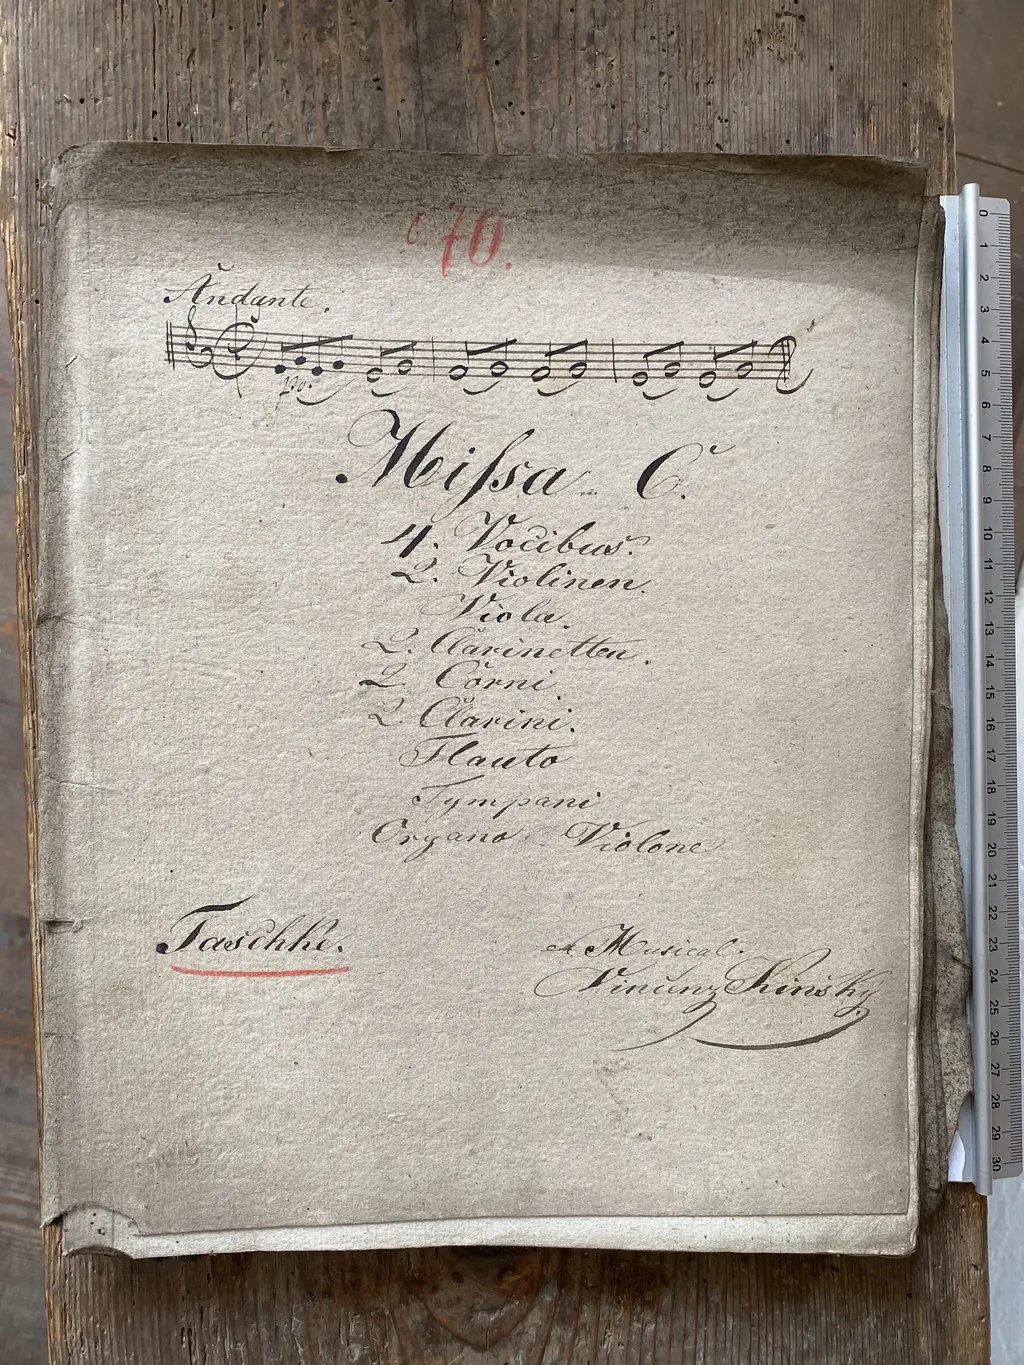 c. 70.
Andante.
Missa in C.
4. Vocibus.
2. Violinen.
Viola.
2. Clarinetten.
2. Corni.
2. Clarini.
Flauto
Tympani
Organo Violone
Taschke.
Musical.
Vincenz Kinsky
0 1 2 3 4 5 6 7 8 9 10 11 12 13 14 15 16 17 18 19 20 21 22 23 24 25 26 27 28 29 30